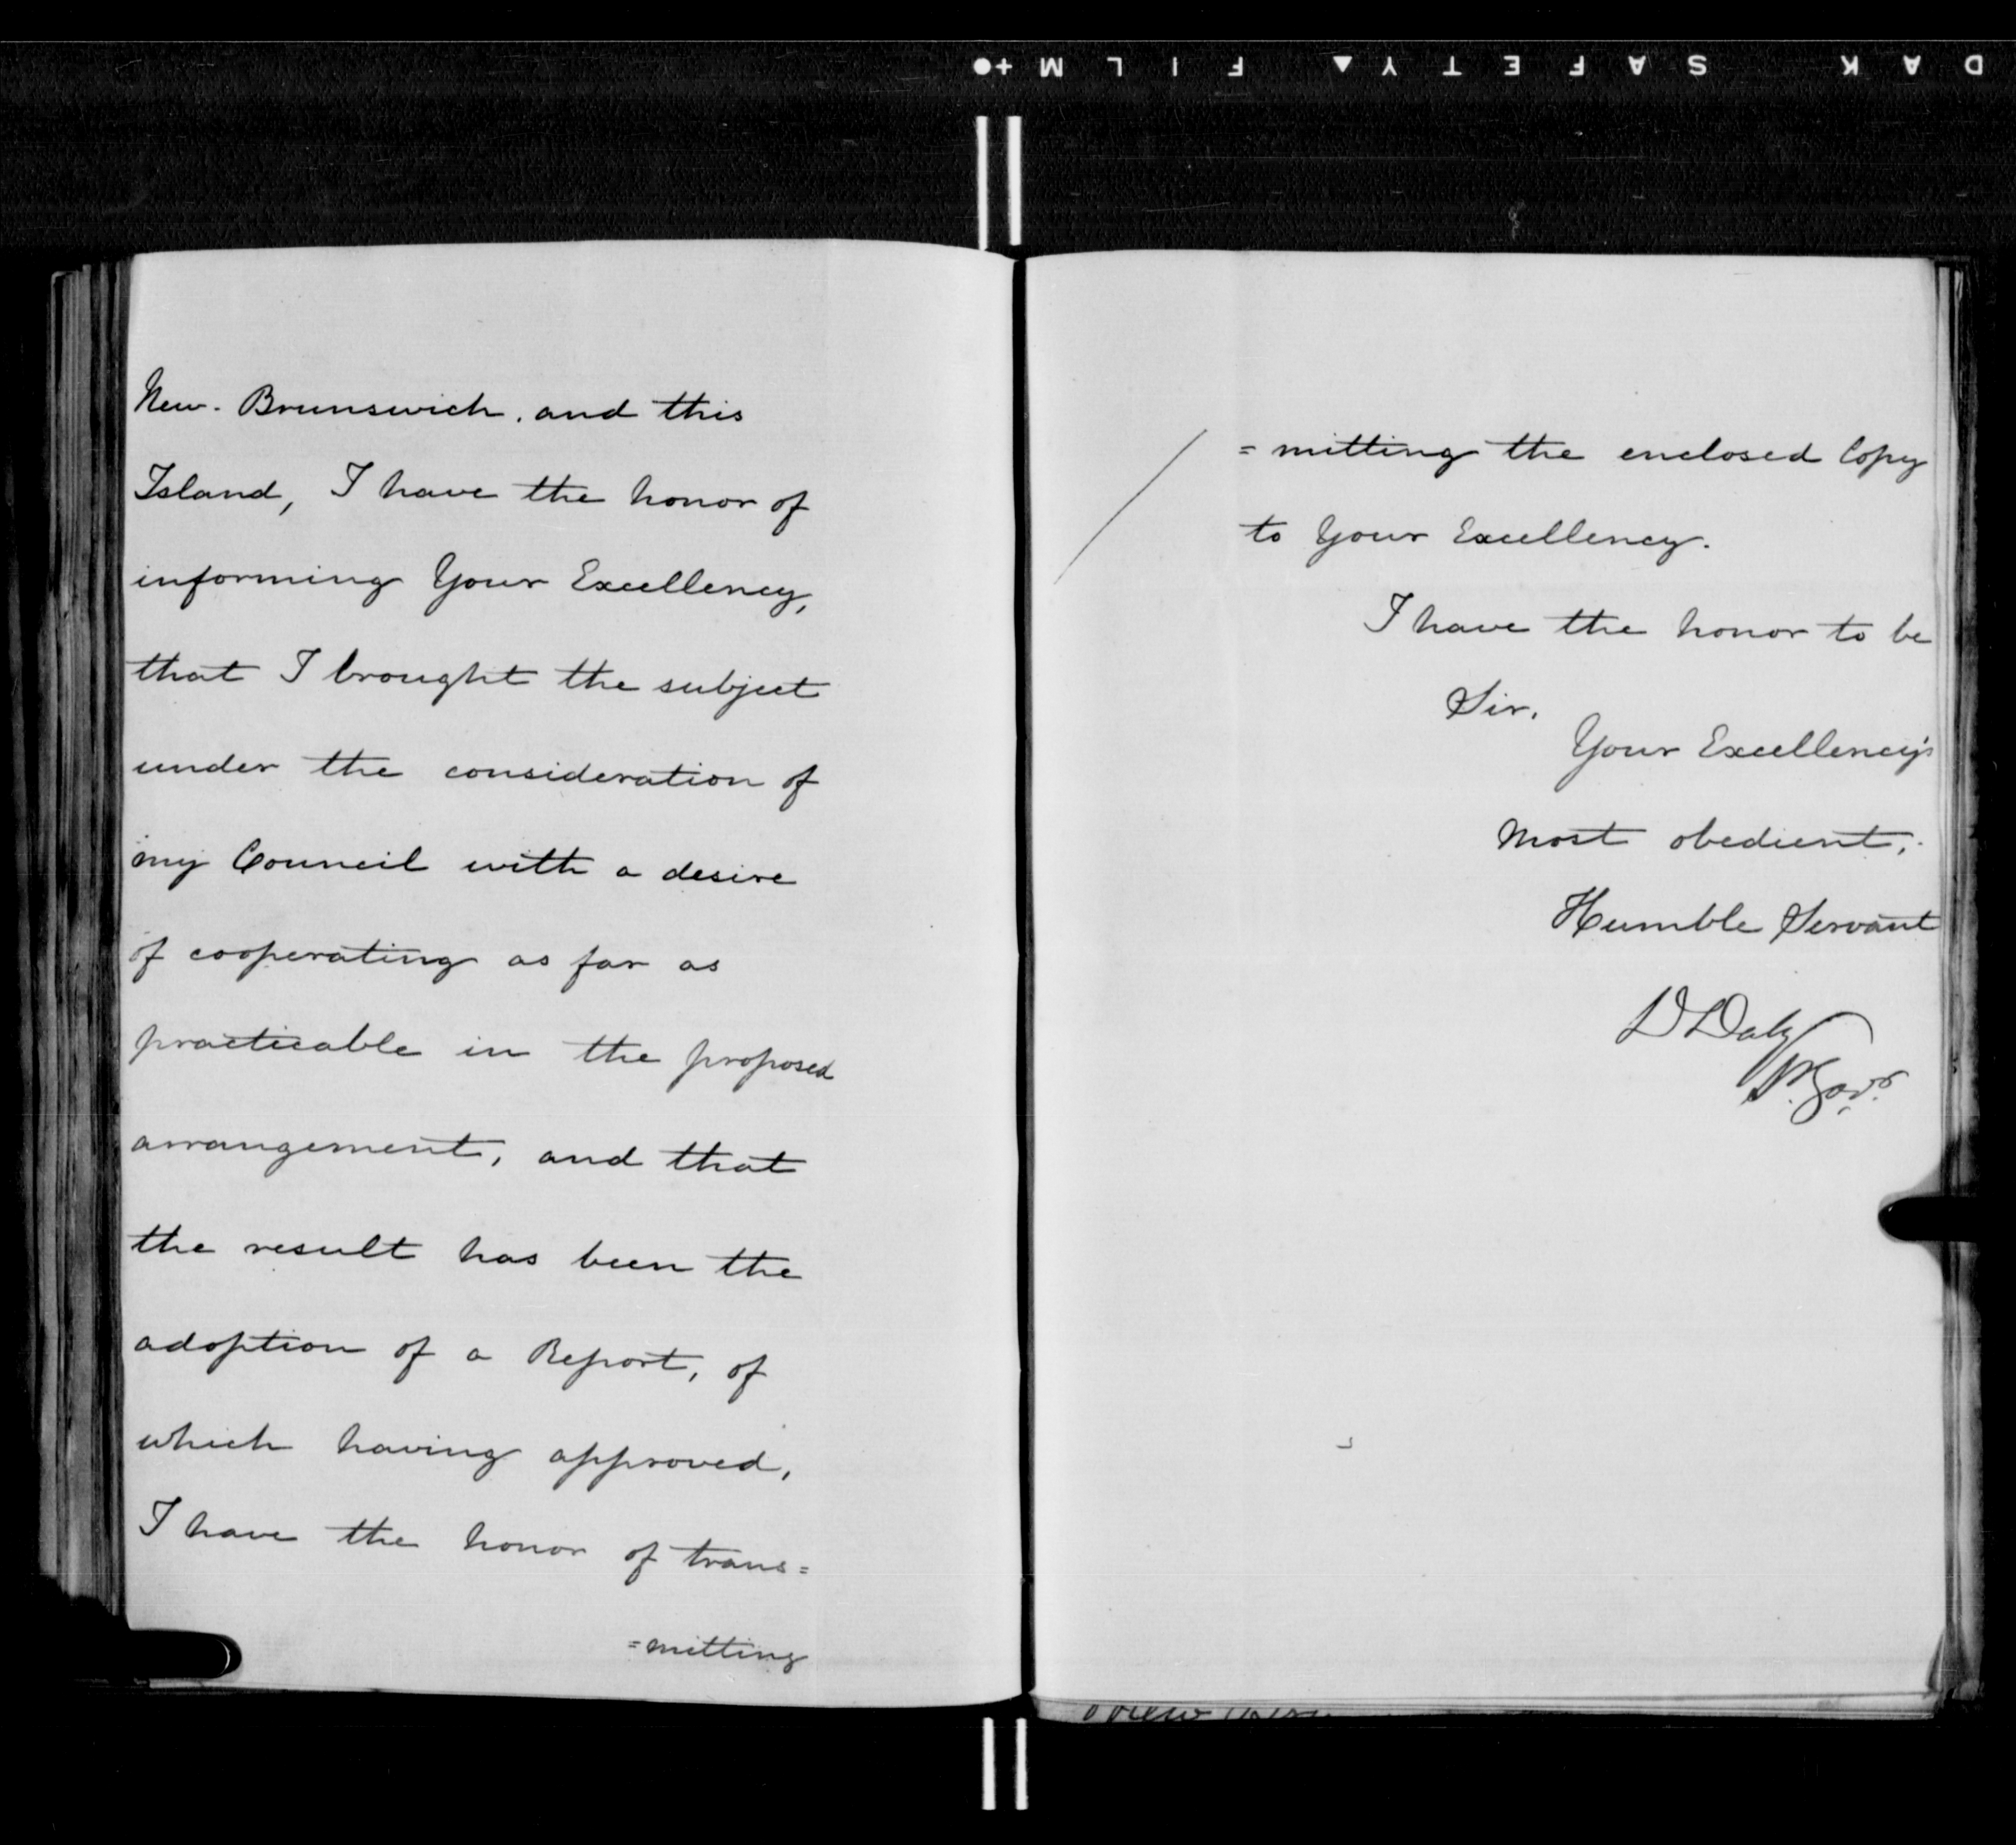 DAK SAFETY▲ FILM+●
New-Brunswick, and this
Island, I have the honor of
informing Your Excellency,
that I brought the subject
under the consideration of
my Council with a desire
of cooperating as far as
practicable in the proposed
arrangement, and that
the result has been the
adoption of a Report, of
which having approved,
I have the honor of trans=
=mitting
=mitting the enclosed Copy
to Your Excellency.
I have the honor to be
Sir,
Your Excellency's
Most obedient,
Humble Servant
D Daly
Lt. Govr.